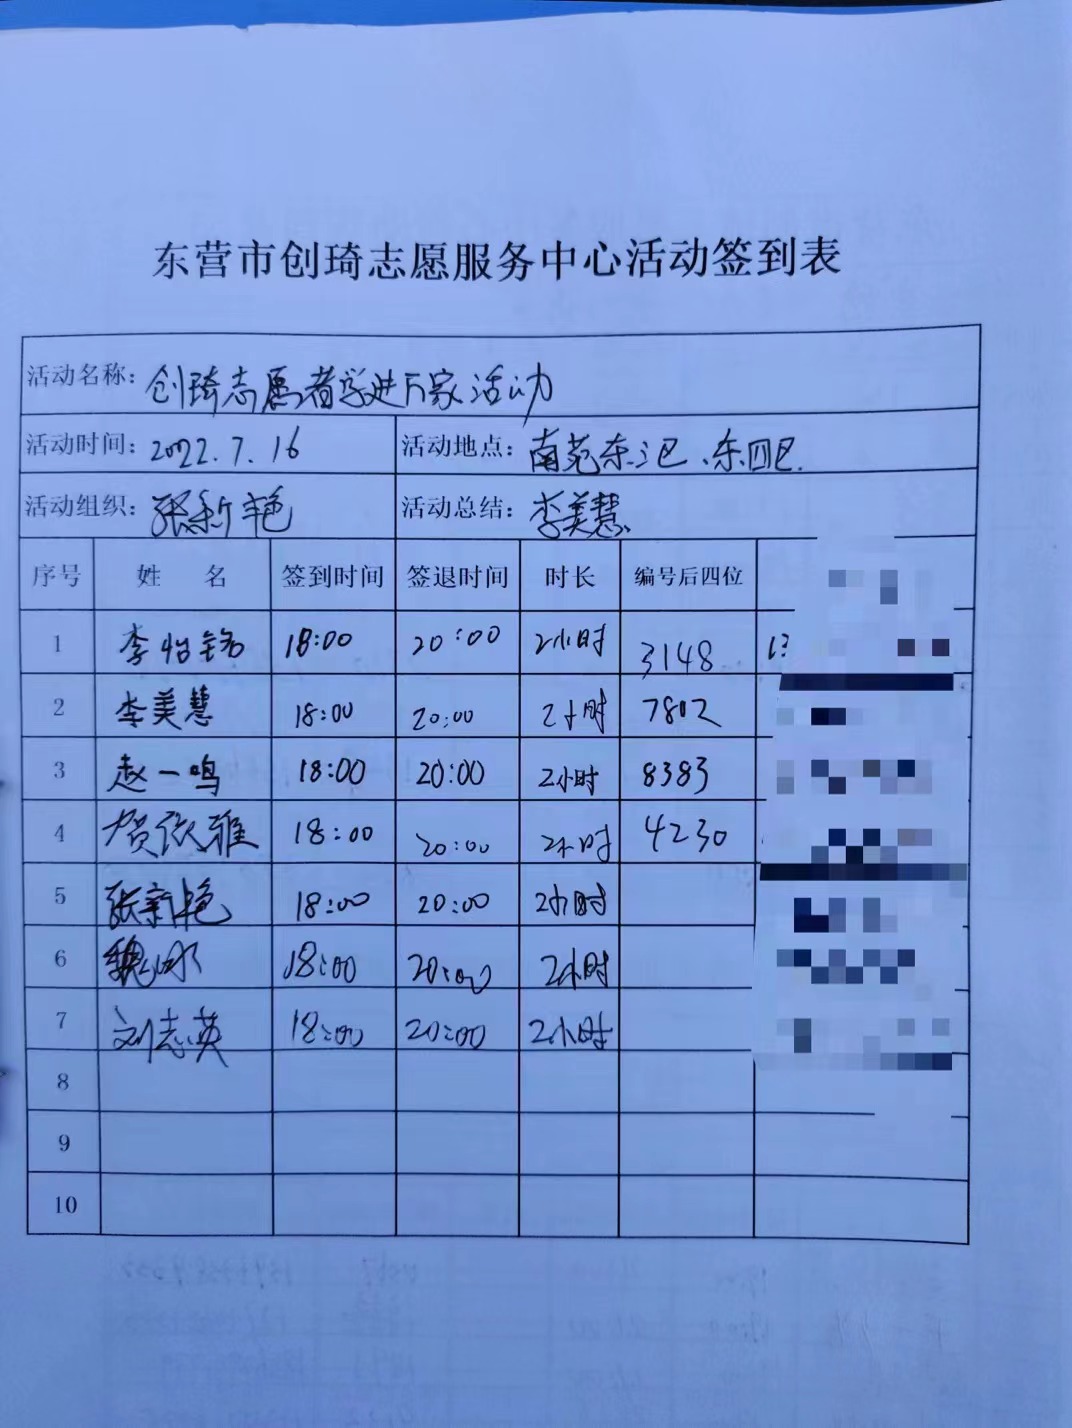 东营市创琦志愿服务中心活动签到表
活动名称：创琦志愿者学进万家活动
活动时间：2022.7.16 活动地点：南苑东三巴、东四巴
活动组织：张新艳 活动总结：李美慧
序号 姓 名 签到时间 签退时间 时长 编号后四位
1 李怡铭 18:00 20:00 2小时 3148
2 李美慧 18:00 20:00 2小时 7802
3 赵一鸣 18:00 20:00 2小时 8383
4 贺依雅 18:00 20:00 2小时 4230
5 张新艳 18:00 20:00 2小时
6 18:00 20:00 2小时
7 刘志英 18:00 20:00 2小时
8
9
10